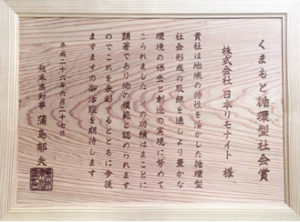 くまもと循環型社会賞
株式会社 日本リモナイト 様
貴社は地域の特性を活かした循環型
社会形成の取組を通しより豊かな
環境の保全と創造の実現に努めて
こられました この功績はまことに
顕著であり他の模範と認められます
のでこれを表彰するとともに今後
ますますの御活躍を期待します
平成二十六年六月二十七日
熊本県知事 蒲島郁夫